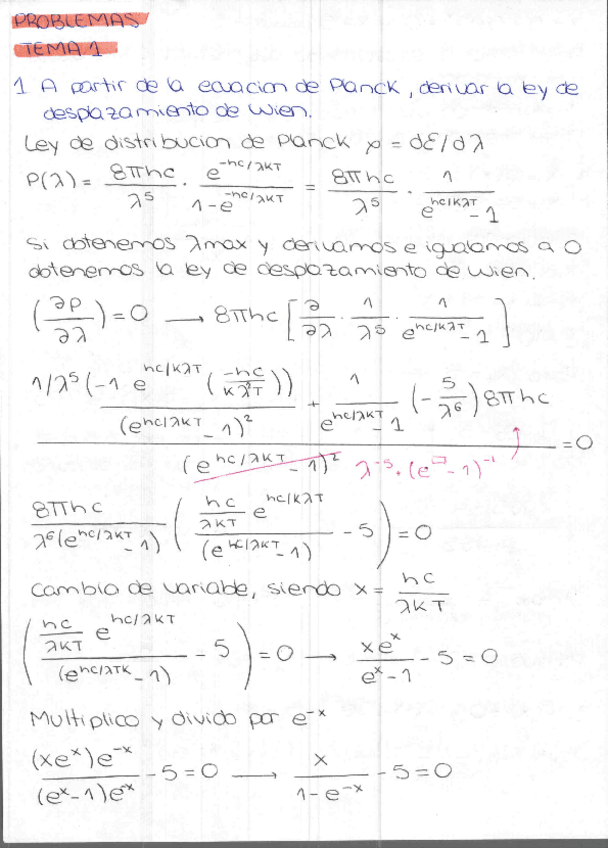 PROBLEMAS
TEMA 1
1 A partir de la ecuacion de Planck, derivar la ley de
desplazamiento de Wien.
Ley de distribucion de Planck ρ = dE/dλ
P(λ) = 8πhc/λ^5 · e^(-hc/λKT)/(1-e^(-hc/λKT)) = 8πhc/λ^5 · 1/(e^(hc/KλT) - 1)
Si obtenemos λmax y derivamos e igualamos a 0
obtenemos la ley de desplazamiento de Wien.
(∂P/∂λ) = 0 → 8πhc [∂/∂λ · 1/λ^5 · 1/(e^(hc/KλT) - 1)]
1/λ^5 (-1 · e^(hc/KλT) (-hc/Kλ^2T))/(e^(hc/λKT) - 1)^2 + 1/(e^(hc/λKT) - 1) (-5/λ^6) 8πhc
(e^(hc/λKT) - 1)^2 λ^-5 · (e^□ - 1)^-1 = 0
8πhc/(λ^6(e^(hc/λKT) - 1)) (hc/λKT e^(hc/KλT)/(e^(hc/λKT) - 1) - 5) = 0
Cambio de variable, siendo x = hc/λKT
(hc/λKT e^(hc/λKT)/(e^(hc/λTK) - 1) - 5) = 0 → xe^x/(e^x - 1) - 5 = 0
Multiplico y divido por e^-x
(xe^x)e^-x/(e^x - 1)e^-x - 5 = 0 → x/(1 - e^-x) - 5 = 0